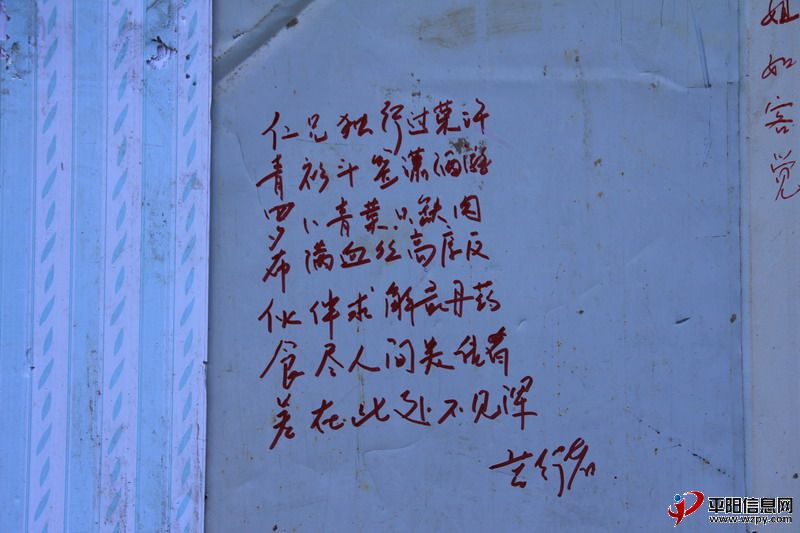 仁兄独行过莱许
青衫斗笠潇洒
罗以青菜只缺肉
布满血丝高原反
伙伴求解寂丹药
食尽人间美佳肴
差在此处不见
苦行者
姐如客觉
平阳信息网
www.wzpy.com